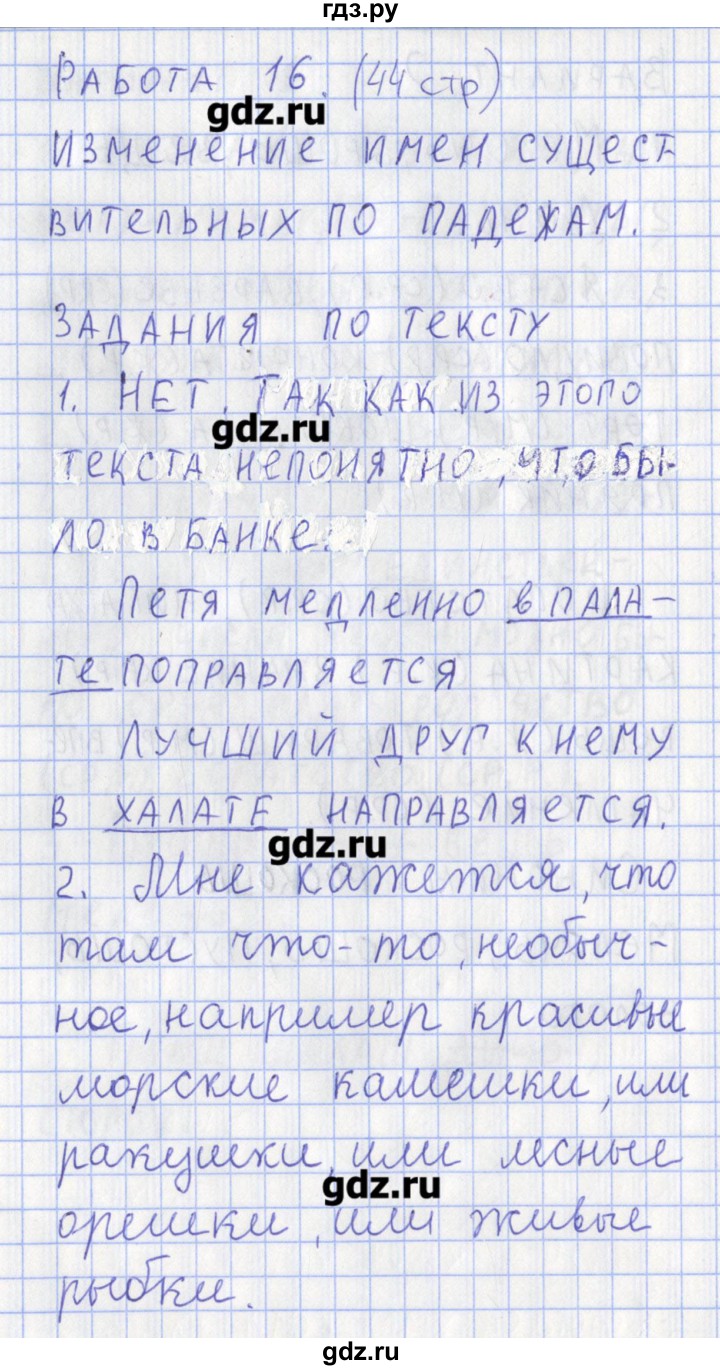 гдз.ру
РАБОТА 16. (44 стр)
gdz.ru
ИЗМЕНЕНИЕ ИМЕН СУЩЕСТ-
ВИТЕЛЬНЫХ ПО ПАДЕЖАМ.
ЗАДАНИЯ ПО ТЕКСТУ
1. НЕТ, ТАК КАК ИЗ ЭТОГО
gdz.ru
ТЕКСТА НЕПОНЯТНО, ЧТО БЫ-
ЛО В БАНКЕ.
ПЕТЯ МЕДЛЕННО В ПАЛА-
ТЕ ПОПРАВЛЯЕТСЯ
ЛУЧШИЙ ДРУГ К НЕМУ
В ХАЛАТЕ НАПРАВЛЯЕТСЯ.
gdz.ru
2. Мне кажется, что
там что-то, необыч-
ное, например красивые
морские камешки, или
ракушки, или лесные
gdz.ru
орешки, или живые
рыбки.